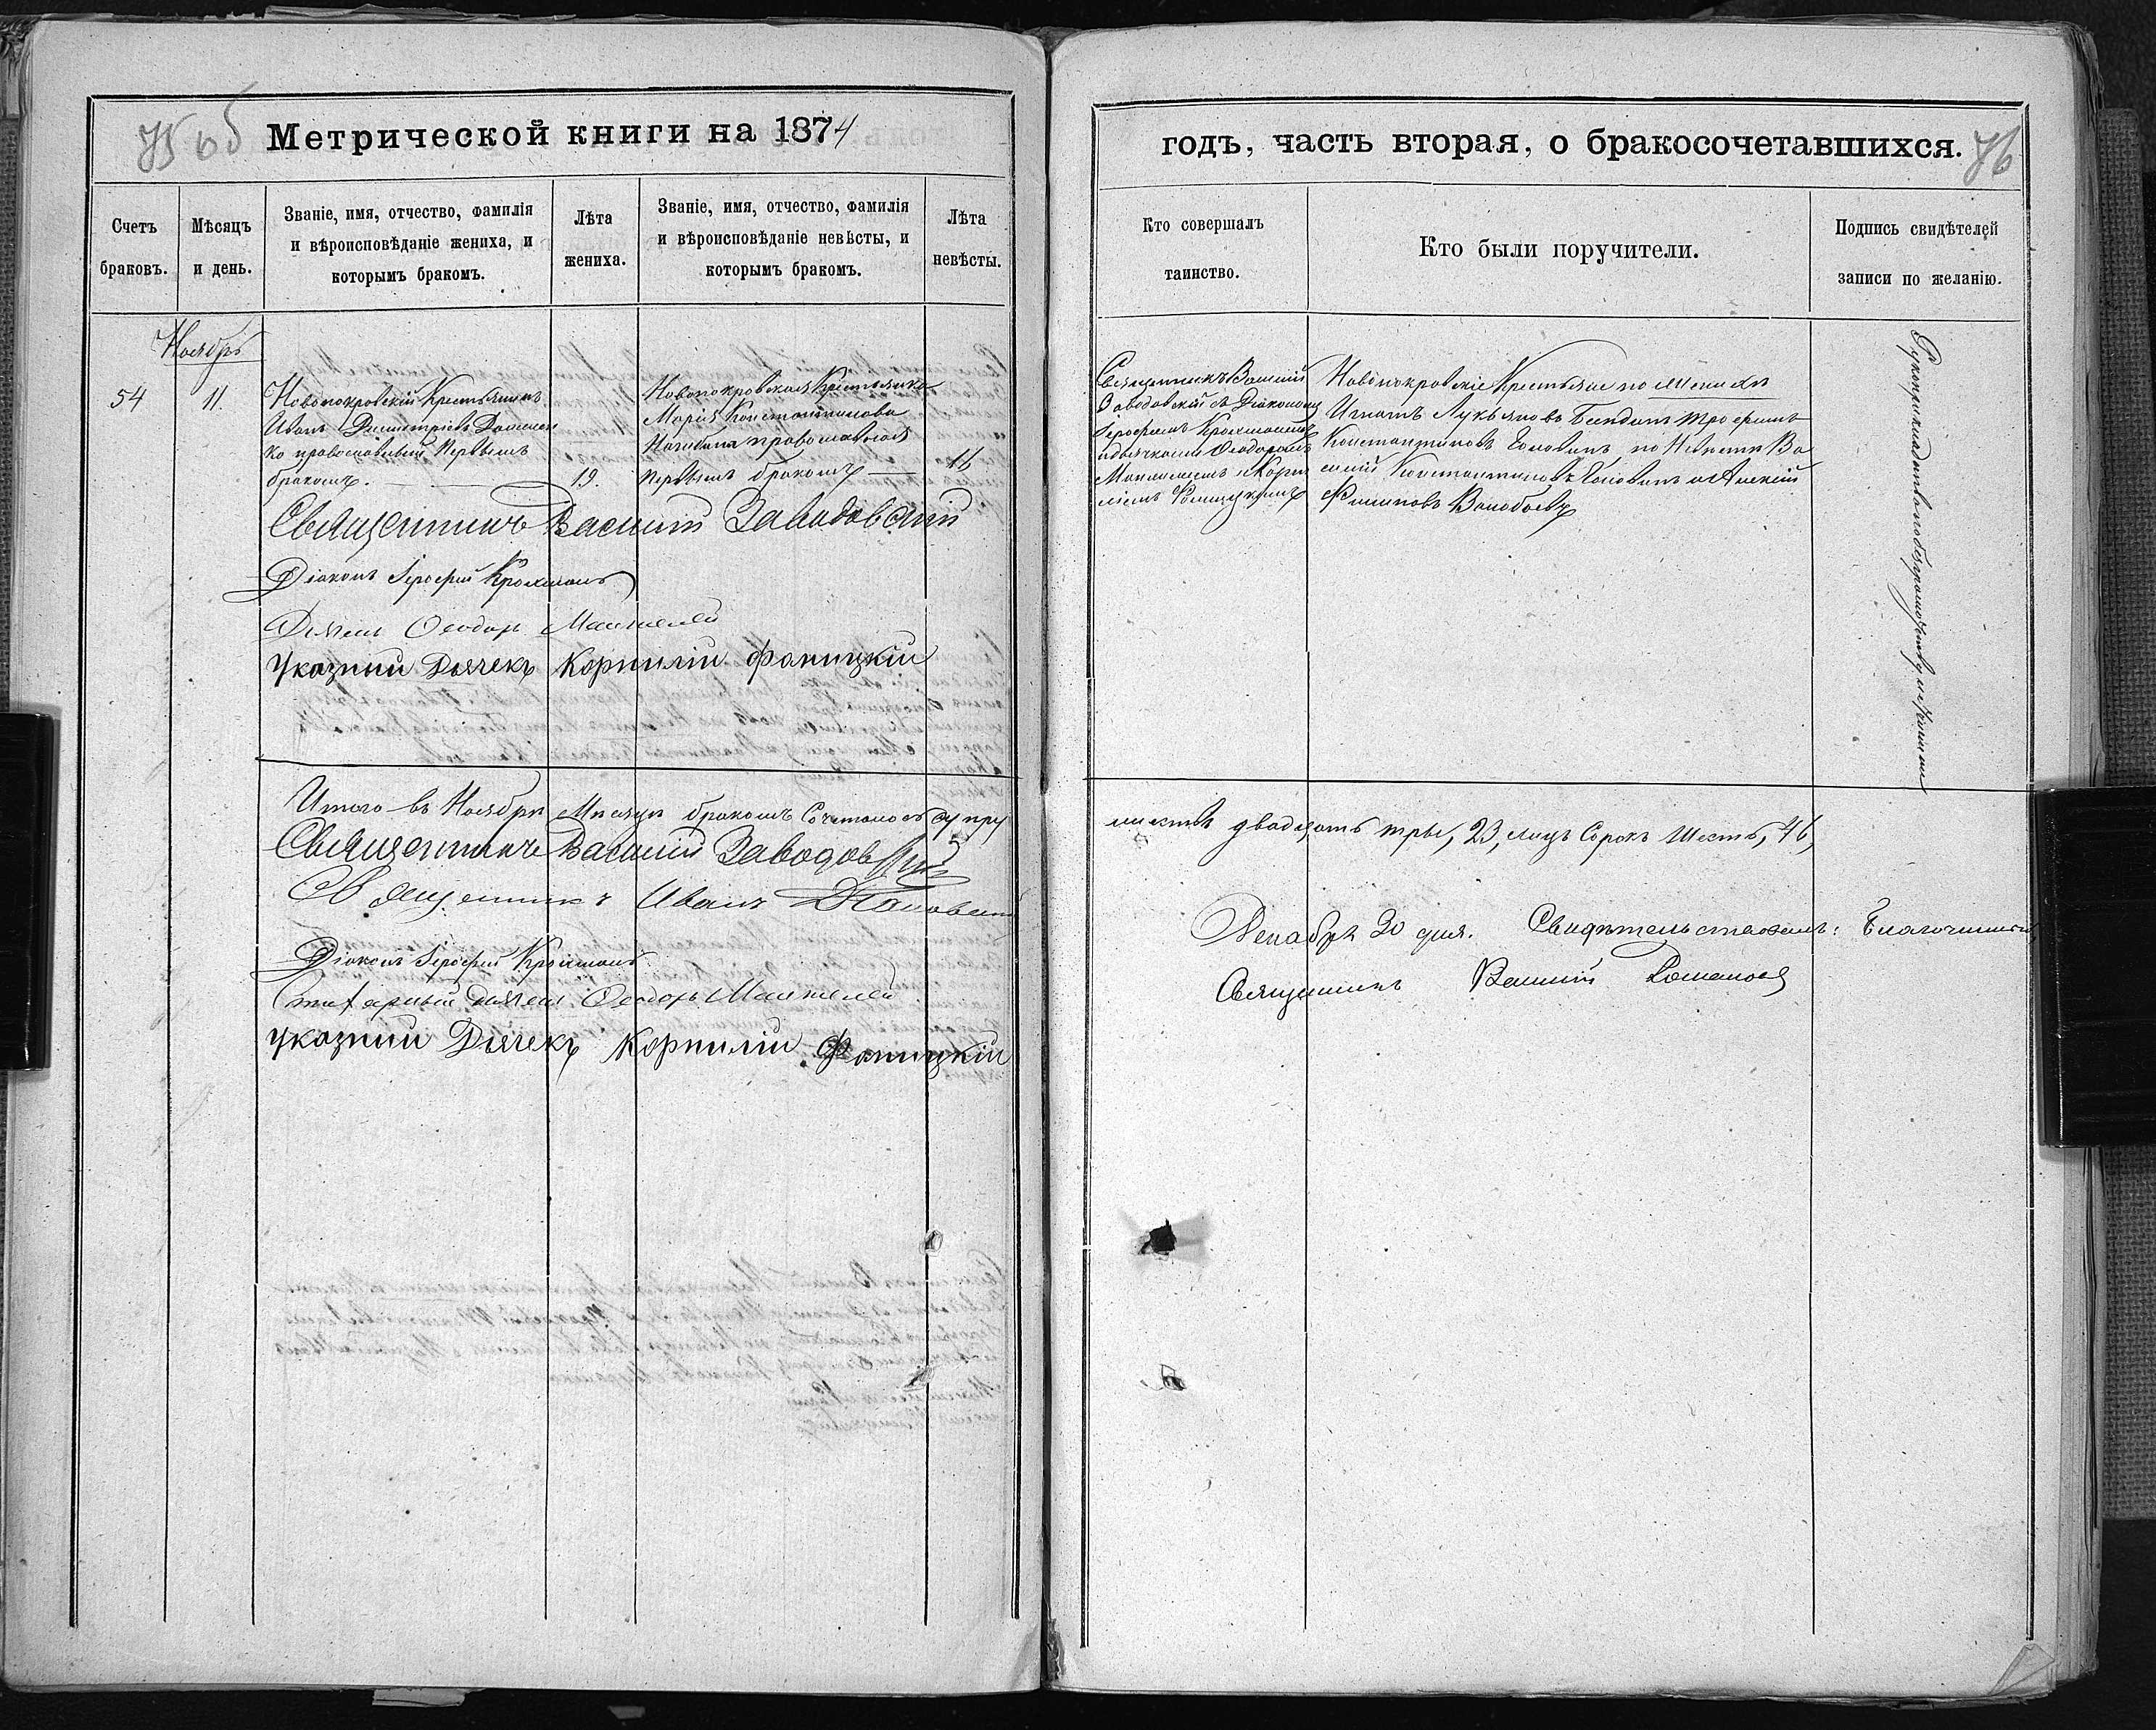 75 об
Метрической книги на 1874
годъ, часть вторая, о бракосочетавшихся.
76
Счетъ браковъ.
Мѣсяцъ и день.
Званіе, имя, отчество, фамилія и вѣроисповѣданіе жениха, и которымъ бракомъ.
Лѣта жениха.
Званіе, имя, отчество, фамилія и вѣроисповѣданіе невѣсты, и которымъ бракомъ.
Лѣта невѣсты.
Кто совершалъ таинство.
Кто были поручители.
Подпись свидѣтелей записи по желанію.
Ноябрь
54
11.
Новопокровскій Крестьянинъ
Иванъ Димитріевъ
ко православный Первымъ
бракомъ.
19.
Новопокровская Крестьянка
Марія Константинова
православная
первымъ бракомъ
16
Священникъ Василій
Заводовскій съ Діакономъ
Ѳеодоромъ
Новопокровскіе Крестьяне по женихѣ
Игнатъ Лукьяновъ
Константиновъ по Невѣстѣ Ва
силій Константиновъ и Алексій
Филиповъ
Священникъ Василий Заводовский
Діаконъ Іерофей
Дьячекъ Ѳеодоръ
Указний Дьячекъ Корнилій Фаницкій
Итого въ Ноябрѣ Мѣсяцѣ бракомъ Сочеталось супру
жествъ двадцать три, 23, лицъ Сорокъ Шесть, 46,
Священникъ Василий Заводовский
Священникъ Иванъ
Діаконъ Іерофей
Дьячекъ Ѳеодоръ
указний Дьячекъ Корнилій Фаницкій
Декабря 30 дня. Свидѣтельствовалъ: Благочинный,
Священникъ Василій Романовъ